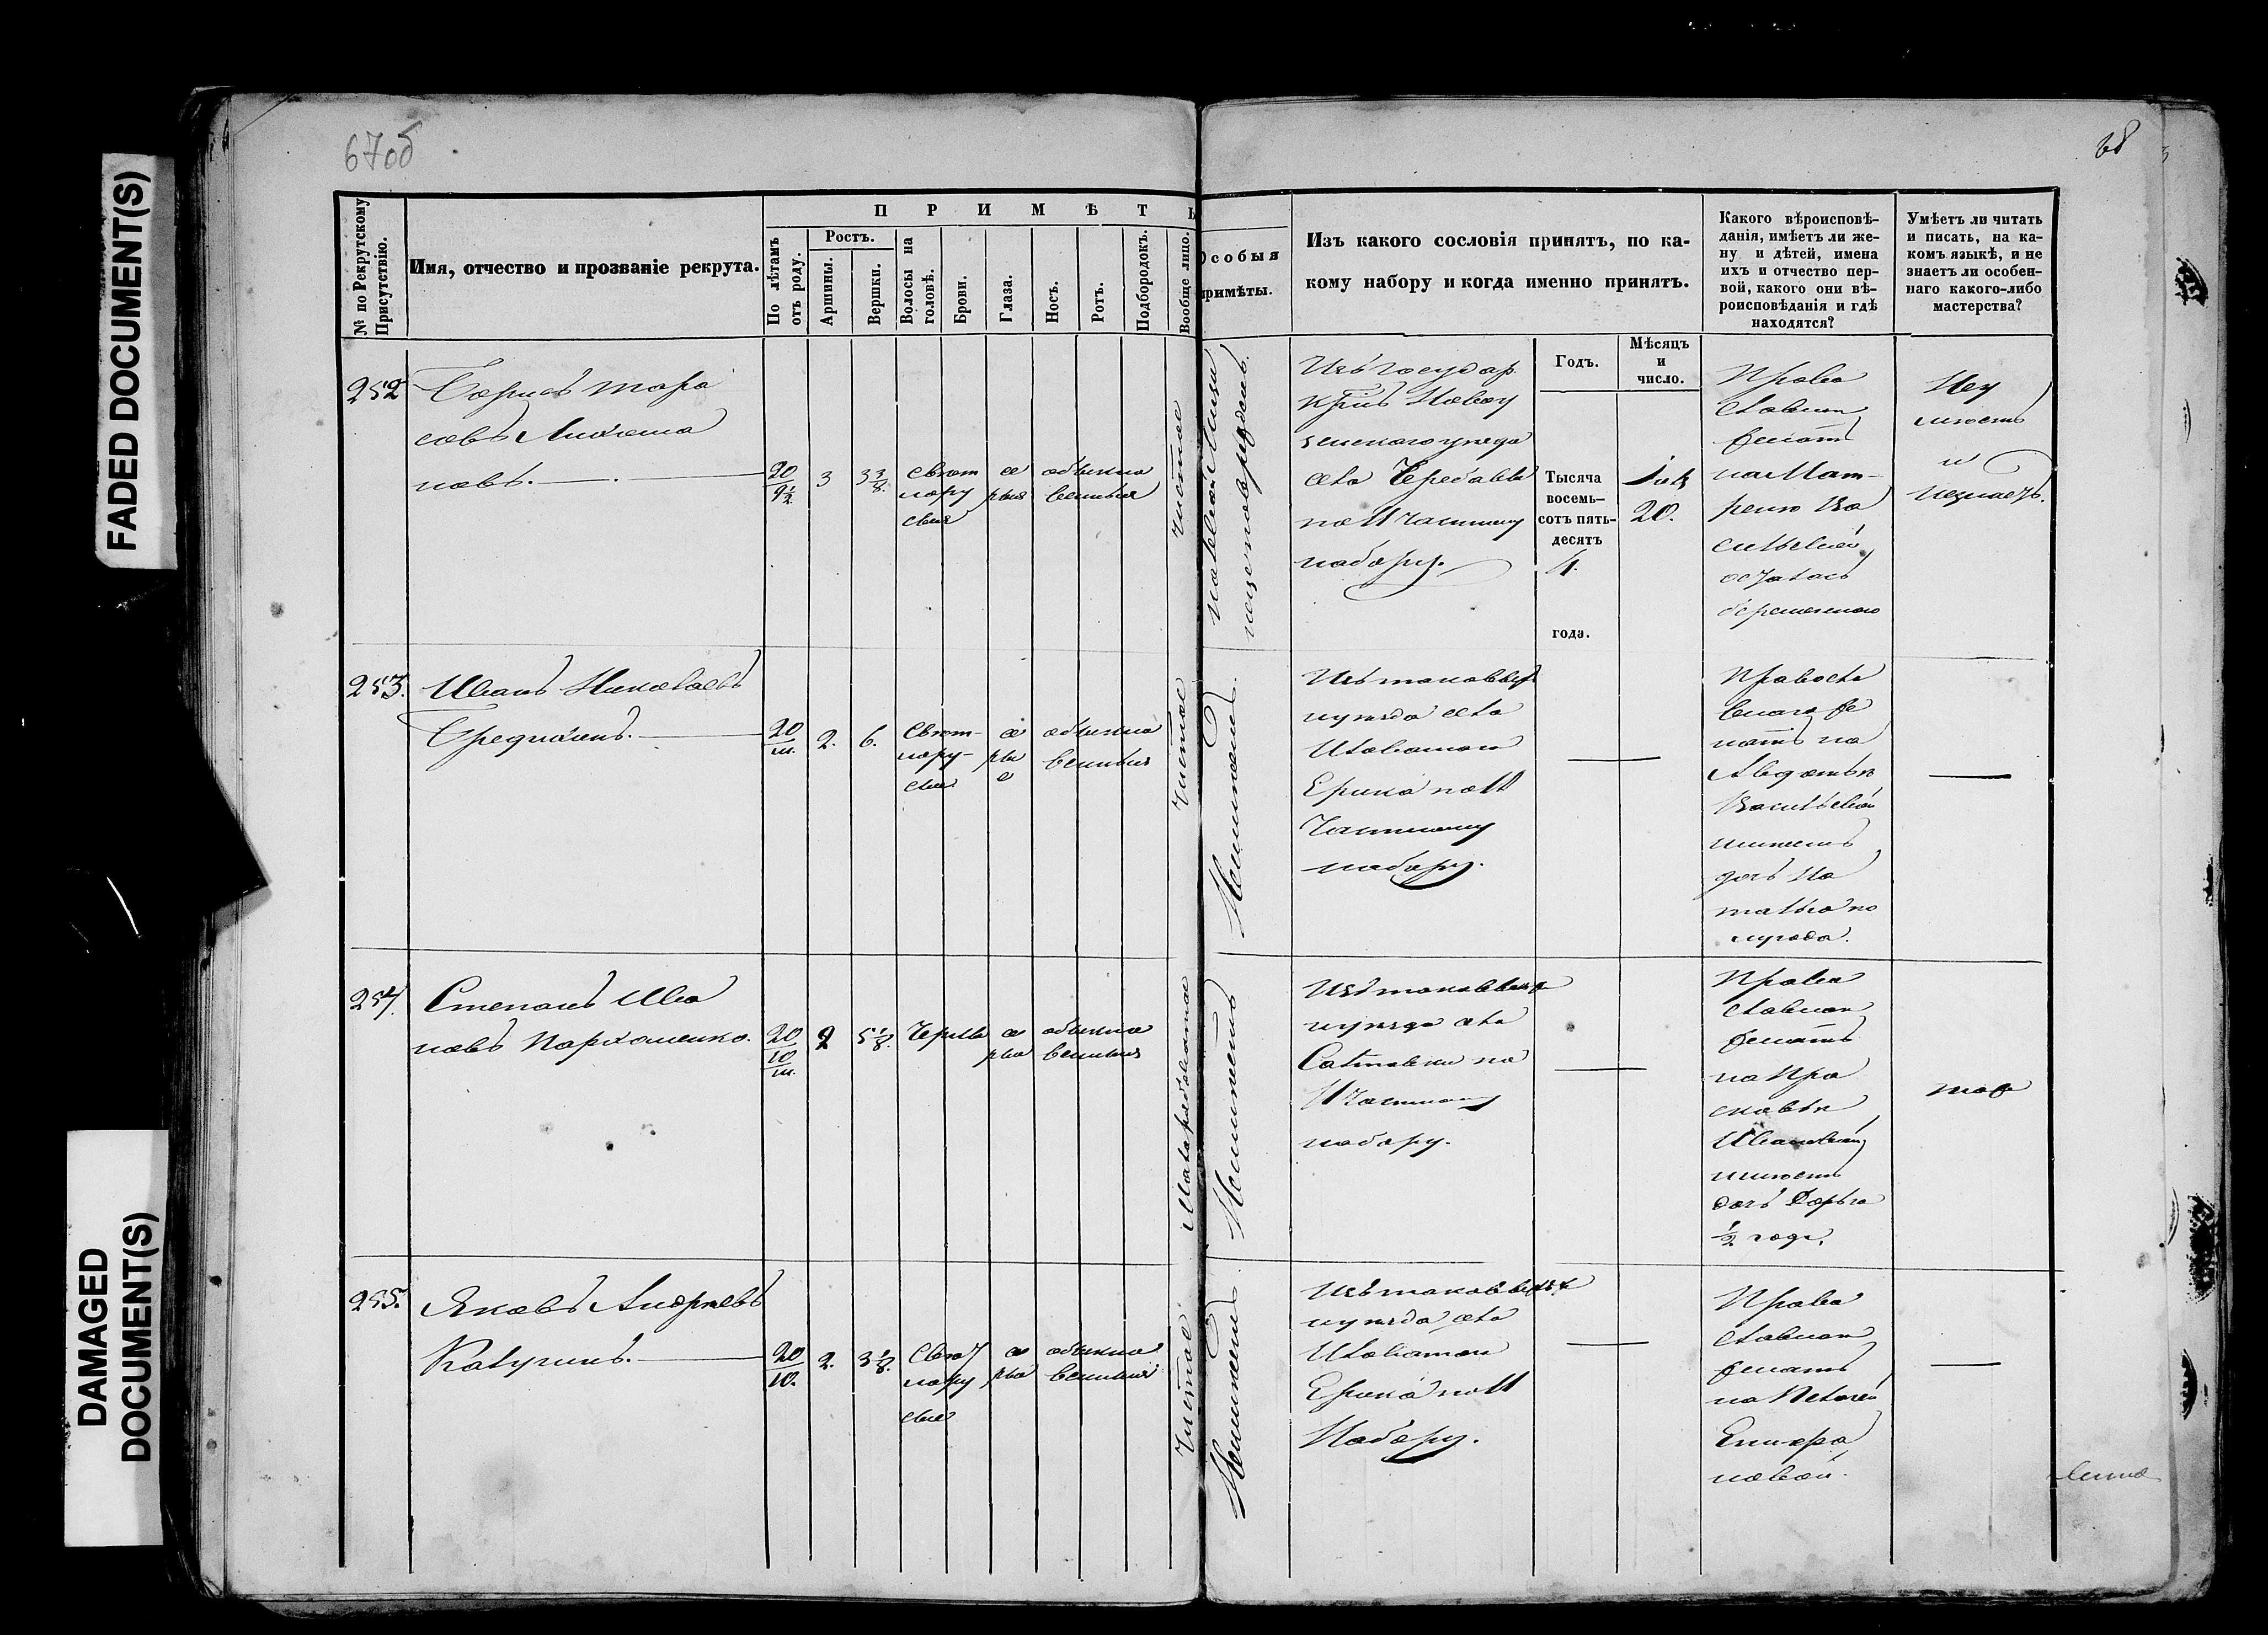 FADED DOCUMENT(S)
DAMAGED
DOCUMENT(S)
67об
68
№ по Рекрутскому
Присутствію.
Имя, отчество и прозваніе рекрута.
ПРИМѢТЫ
По лѣтамъ
отъ роду.
Ростъ.
Аршины.
Вершки.
Волосы на
головѣ.
Брови.
Глаза.
Носъ.
Ротъ.
Подбородокъ.
Вообще лицо.
Особыя
примѣты.
Изъ какого сословія принятъ, по ка-
кому набору и когда именно принятъ.
Какого вѣроисповѣ-
данія, имѣетъ ли же-
ну и дѣтей, имена
ихъ и отчество пер-
вой, какого они вѣ-
роисповѣданія и гдѣ
находятся?
Умѣетъ ли читать
и писать, на ка-
комъ языкѣ, и не
знаетъ ли особен-
наго какого-либо
мастерства?
Годъ.
Мѣсяцъ
и
число.
252
Борисъ Тора
совъ
новъ.
20
9½
3
3 3/8.
Свѣт
лору
сыя
се
рыя
обыкно
венныя
Чистое
Изъ государ
крес. Новоу
зенскаго уезда
села Чередаева
по II частному
набору.
Тысяча
восемь-
сотъ пять-
десятъ
4.
года.
20.
Право
славнаго
женатъ
на Мат-
рене Ва
сильевой
осталась
беременною
Неу
меетъ
и
незнаетъ.
253.
Иванъ Николаевъ
Бредихинъ.
20
м.
2.
6.
Свѣт-
лору-
сыя
се
ры
е
обыкно
венныя
Чистое
Неимеетъ.
Изъ таковыхъ
уезда села
Ерика по II
Частному
набору.
Правосла
внаго же
натъ на
Авдотьѣ
Васильевой
имеетъ
дочь На
талью по
лугода.
254.
Степанъ Ива
новъ Пархоменко.
20
10
м.
2
5 1/8.
Черны
се
рыя
обыкно
венныя
Малорябоватое
Неимеетъ
Изъ таковыхъ
уезда села
Салтовки по
II Частному
набору.
Право
славнаго
женатъ
на Пра
сковьѣ
Ивановой
имеетъ
дочь Дарью
½ года.
255.
Яковъ Андреевъ
Калугинъ.
20
10.
2.
3 1/8.
Свѣт
лору
сыя
се
рыя
обыкно
венныя
Чистое
Неимеетъ.
Изъ таковыхъ
уезда села
Ерика по II
Набору.
Право
славнаго
женатъ
на Пелагеѣ
новой.